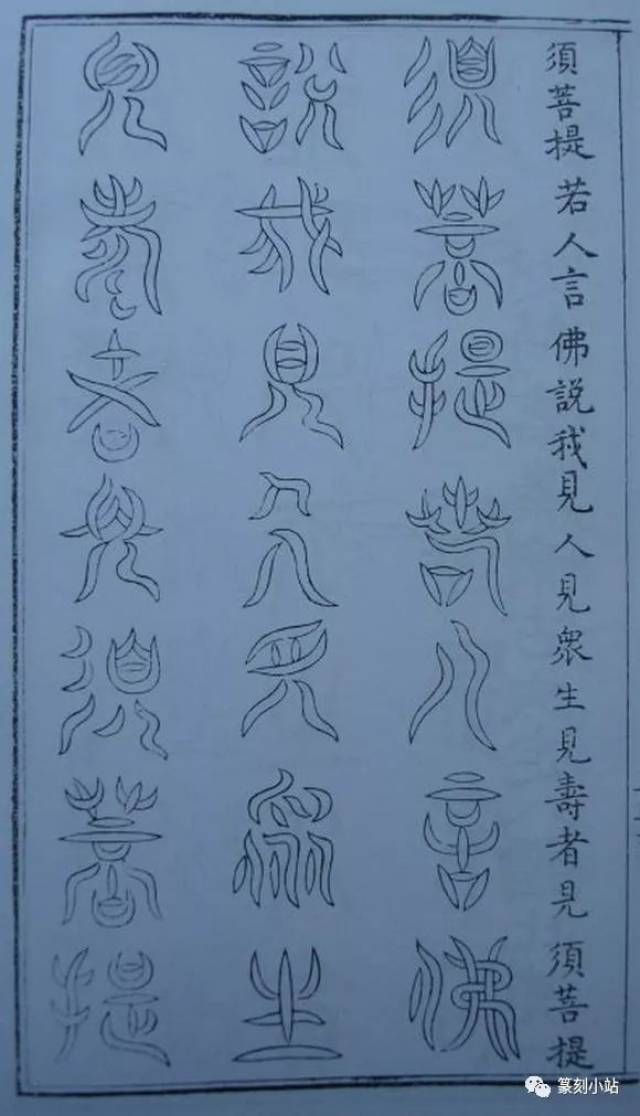 須菩提若人言佛説我見人見衆生見壽者見須菩提
須菩提若人言佛
説我見人見衆生
見壽者見須菩提
篆刻小站